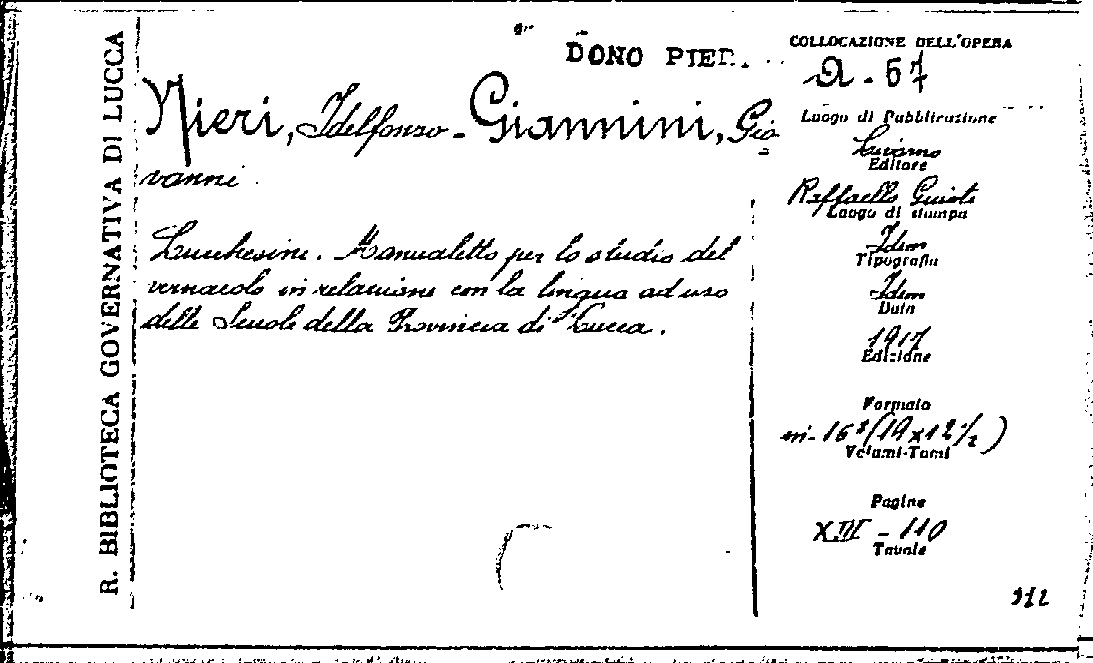 R. BIBLIOTECA GOVERNATIVA DI LUCCA
DONO PIED.
Nieri, Idelfonso - Giannini, Gio
vanni.
Lucchesine. Manualetto per lo studio del
vernacolo in relazione con la lingua ad uso
delle Scuole della Provincia di Lucca.
COLLOCAZIONE DELL'OPERA
A - 57
Luogo di Pubblicazione
Livorno
Editore
Raffaello Giusti
Luogo di stampa
Idem
Tipografia
Idem
Data
1917
Edizione
Formato
in-16° (19x12½)
Volumi-Tomi
Pagine
XIII - 110
Tavole